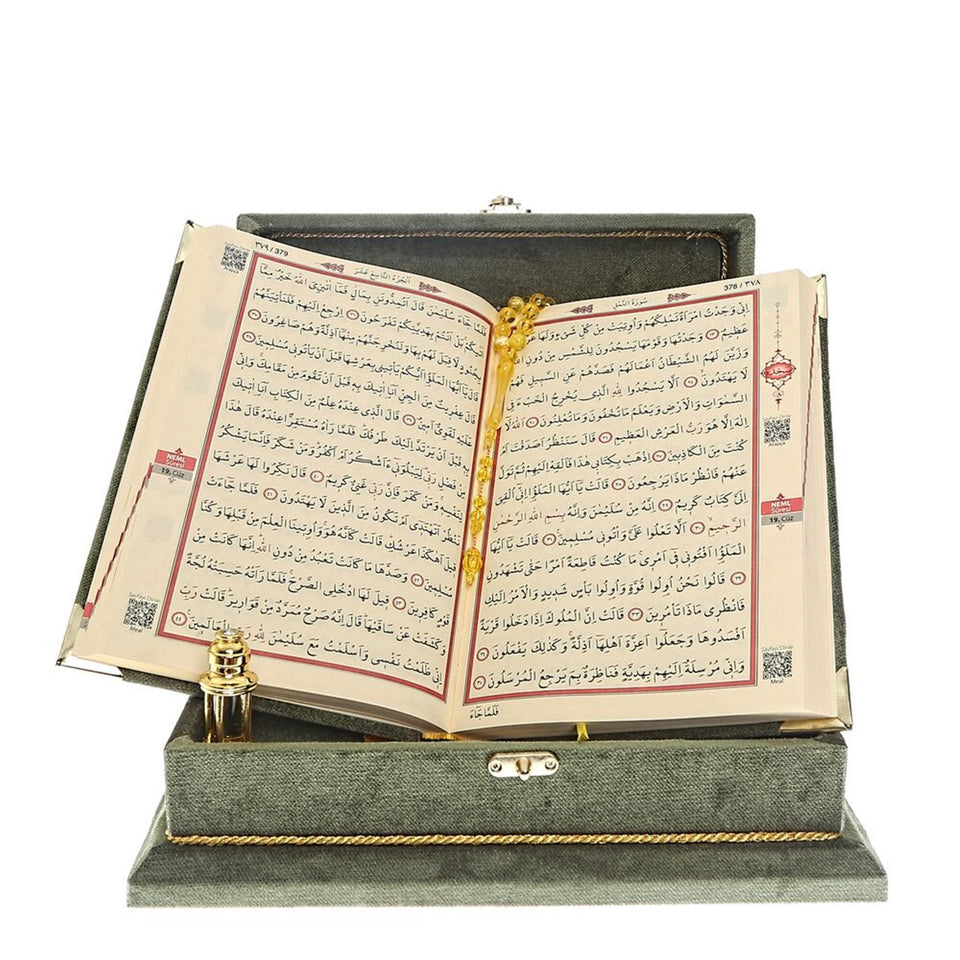 378 / ٣٧٨
سُورَةُ النَّمْلِ
اِنّ۪ي وَجَدْتُ امْرَاَةً تَمْلِكُهُمْ وَاُو۫تِيَتْ مِنْ كُلِّ شَيْءٍ وَلَهَا
عَظ۪يمٌ ﴿٢٣﴾ وَجَدْتُهَا وَقَوْمَهَا يَسْجُدُونَ لِلشَّمْسِ مِنْ دُونِ
وَزَيَّنَ لَهُمُ الشَّيْطَانُ اَعْمَالَهُمْ فَصَدَّهُمْ عَنِ السَّب۪يلِ فَهُمْ
لَا يَهْتَدُونَ ﴿٢٤﴾ اَلَّا يَسْجُدُوا لِلّٰهِ الَّذ۪ي يُخْرِجُ الْخَبْءَ فِي
السَّمٰوَاتِ وَالْاَرْضِ وَيَعْلَمُ مَا تُخْفُونَ وَمَا تُعْلِنُونَ ﴿٢٥﴾ اَللّٰهُ لَٓا
اِلٰهَ اِلَّا هُوَ رَبُّ الْعَرْشِ الْعَظ۪يمِ ﴿٢٦﴾ قَالَ سَنَنْظُرُ اَصَدَقْتَ اَمْ
كُنْتَ مِنَ الْكَاذِب۪ينَ ﴿٢٧﴾ اِذْهَبْ بِكِتَاب۪ي هٰذَا فَاَلْقِهْ اِلَيْهِمْ ثُمَّ تَوَلَّ
عَنْهُمْ فَانْظُرْ مَاذَا يَرْجِعُونَ ﴿٢٨﴾ قَالَتْ يَٓا اَيُّهَا الْمَلَؤُا اِنّ۪ٓي اُلْقِيَ
اِلَيَّ كِتَابٌ كَر۪يمٌ ﴿٢٩﴾ اِنَّهُ مِنْ سُلَيْمٰنَ وَاِنَّهُ بِسْمِ اللّٰهِ الرَّحْمٰنِ
الرَّح۪يمِ ﴿٣٠﴾ اَلَّا تَعْلُوا عَلَيَّ وَاْتُون۪ي مُسْلِم۪ينَ ﴿٣١﴾ قَالَتْ يَٓا اَيُّهَا
الْمَلَؤُا اَفْتُون۪ي ف۪ٓي اَمْر۪ي مَا كُنْتُ قَاطِعَةً اَمْرًا حَتّٰى تَشْهَدُونِ
﴿٣٢﴾ قَالُوا نَحْنُ اُو۬لُوا قُوَّةٍ وَاُو۬لُوا بَاْسٍ شَد۪يدٍ وَالْاَمْرُ اِلَيْكِ
فَانْظُر۪ي مَاذَا تَاْمُر۪ينَ ﴿٣٣﴾ قَالَتْ اِنَّ الْمُلُوكَ اِذَا دَخَلُوا قَرْيَةً
اَفْسَدُوهَا وَجَعَلُٓوا اَعِزَّةَ اَهْلِهَٓا اَذِلَّةً وَكَذٰلِكَ يَفْعَلُونَ ﴿٣٤﴾
وَاِنّ۪ي مُرْسِلَةٌ اِلَيْهِمْ بِهَدِيَّةٍ فَنَاظِرَةٌ بِمَ يَرْجِعُ الْمُرْسَلُونَ ﴿٣٥﴾
فَلَمَّا جَٓاءَ
NEML
Sûresi
19. Cüz
Meal
٣٧٩ / 379
اَلْجُزْءُ التَّاسِعَ عَشَرَ
فَلَمَّا جَٓاءَ سُلَيْمٰنَ قَالَ اَتُمِدُّونَنِ بِمَالٍ فَمَٓا اٰتٰينِيَ اللّٰهُ خَيْرٌ مِمَّٓا
بَلْ اَنْتُمْ بِهَدِيَّتِكُمْ تَفْرَحُونَ ﴿٣٦﴾ اِرْجِعْ اِلَيْهِمْ فَلَنَاْتِيَنَّهُمْ
بِجُنُودٍ لَا قِبَلَ لَهُمْ بِهَا وَلَنُخْرِجَنَّهُمْ مِنْهَٓا اَذِلَّةً وَهُمْ صَاغِرُونَ ﴿٣٧﴾
قَالَ يَٓا اَيُّهَا الْمَلَؤُا اَيُّكُمْ يَاْت۪ين۪ي بِعَرْشِهَا قَبْلَ اَنْ يَاْتُون۪ي مُسْلِم۪ينَ ﴿٣٨﴾
قَالَ عِفْر۪يتٌ مِنَ الْجِنِّ اَنَا۬ اٰت۪يكَ بِه۪ قَبْلَ اَنْ تَقُومَ مِنْ مَقَامِكَ وَاِنّ۪ي
عَلَيْهِ لَقَوِيٌّ اَم۪ينٌ ﴿٣٩﴾ قَالَ الَّذ۪ي عِنْدَهُ عِلْمٌ مِنَ الْكِتَابِ اَنَا۬ اٰت۪يكَ
بِه۪ قَبْلَ اَنْ يَرْتَدَّ اِلَيْكَ طَرْفُكَ فَلَمَّا رَاٰهُ مُسْتَقِرًّا عِنْدَهُ قَالَ هٰذَا
مِنْ فَضْلِ رَبّ۪ي لِيَبْلُوَن۪ٓي ءَاَشْكُرُ اَمْ اَكْفُرُ وَمَنْ شَكَرَ فَاِنَّمَا يَشْكُرُ
لِنَفْسِه۪ وَمَنْ كَفَرَ فَاِنَّ رَبّ۪ي غَنِيٌّ كَر۪يمٌ ﴿٤٠﴾ قَالَ نَكِّرُوا لَهَا عَرْشَهَا
نَنْظُرْ اَتَهْتَد۪ٓي اَمْ تَكُونُ مِنَ الَّذ۪ينَ لَا يَهْتَدُونَ ﴿٤١﴾ فَلَمَّا جَٓاءَتْ
ق۪يلَ اَهٰكَذَا عَرْشُكِ قَالَتْ كَاَنَّهُ هُوَ وَاُو۫ت۪ينَا الْعِلْمَ مِنْ قَبْلِهَا وَكُنَّا
مُسْلِم۪ينَ ﴿٤٢﴾ وَصَدَّهَا مَا كَانَتْ تَعْبُدُ مِنْ دُونِ اللّٰهِ اِنَّهَا كَانَتْ مِنْ
قَوْمٍ كَافِر۪ينَ ﴿٤٣﴾ ق۪يلَ لَهَا ادْخُلِي الصَّرْحَ فَلَمَّا رَاَتْهُ حَسِبَتْهُ لُجَّةً
وَكَشَفَتْ عَنْ سَاقَيْهَا قَالَ اِنَّهُ صَرْحٌ مُمَرَّدٌ مِنْ قَوَار۪يرَ قَالَتْ رَبِّ
اِنّ۪ي ظَلَمْتُ نَفْس۪ي وَاَسْلَمْتُ مَعَ سُلَيْمٰنَ لِلّٰهِ رَبِّ الْعَالَم۪ينَ ﴿٤٤﴾
NEML
Sûresi
19. Cüz
Meal